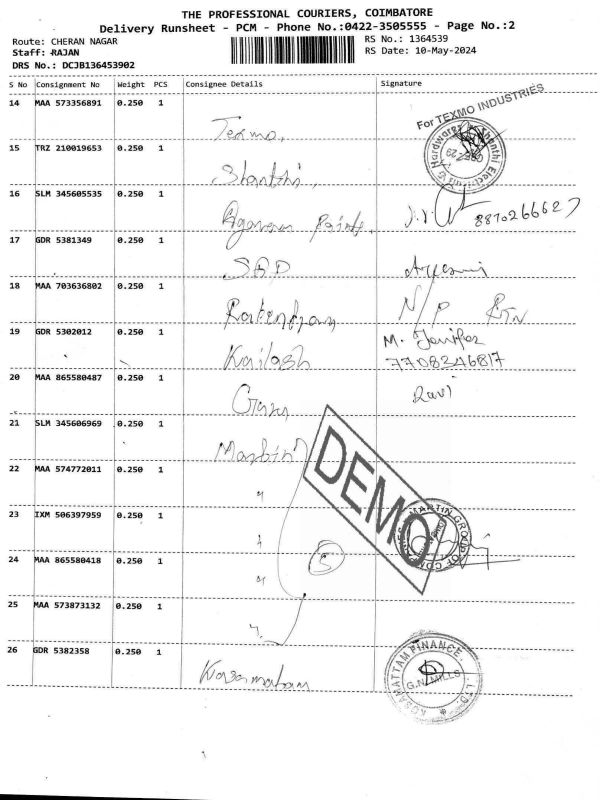 THE PROFESSIONAL COURIERS, COIMBATORE
Delivery Runsheet - PCM - Phone No.:0422-3505555 - Page No.:2
Route: CHERAN NAGAR
RS No.: 1364539
Staff: RAJAN
RS Date: 10-May-2024
DRS No.: DCJB136453902
S No Consignment No Weight PCS Consignee Details Signature
14 MAA 573356891 0.250 1
Texmo.
For TEXMO INDUSTRIES
15 TRZ 210019653 0.250 1
Shanthi.
16 SLM 345605535 0.250 1
8870266627
17 GDR 5381349 0.250 1
18 MAA 703636802 0.250 1
N/P RTN
19 GDR 5302012 0.250 1
Kailash
M. Jenifer
7708346817
20 MAA 865580487 0.250 1
Ravi
21 SLM 345606969 0.250 1
DEMO
22 MAA 574772011 0.250 1
"
23 IXM 506397959 0.250 1
"
5
MARTIN GROUP OF COMPANIES
24 MAA 865580418 0.250 1
"
25 MAA 573873132 0.250 1
"
26 GDR 5382358 0.250 1
KOSAMATTAM FINANCE. LTD.
G.N. MILLS